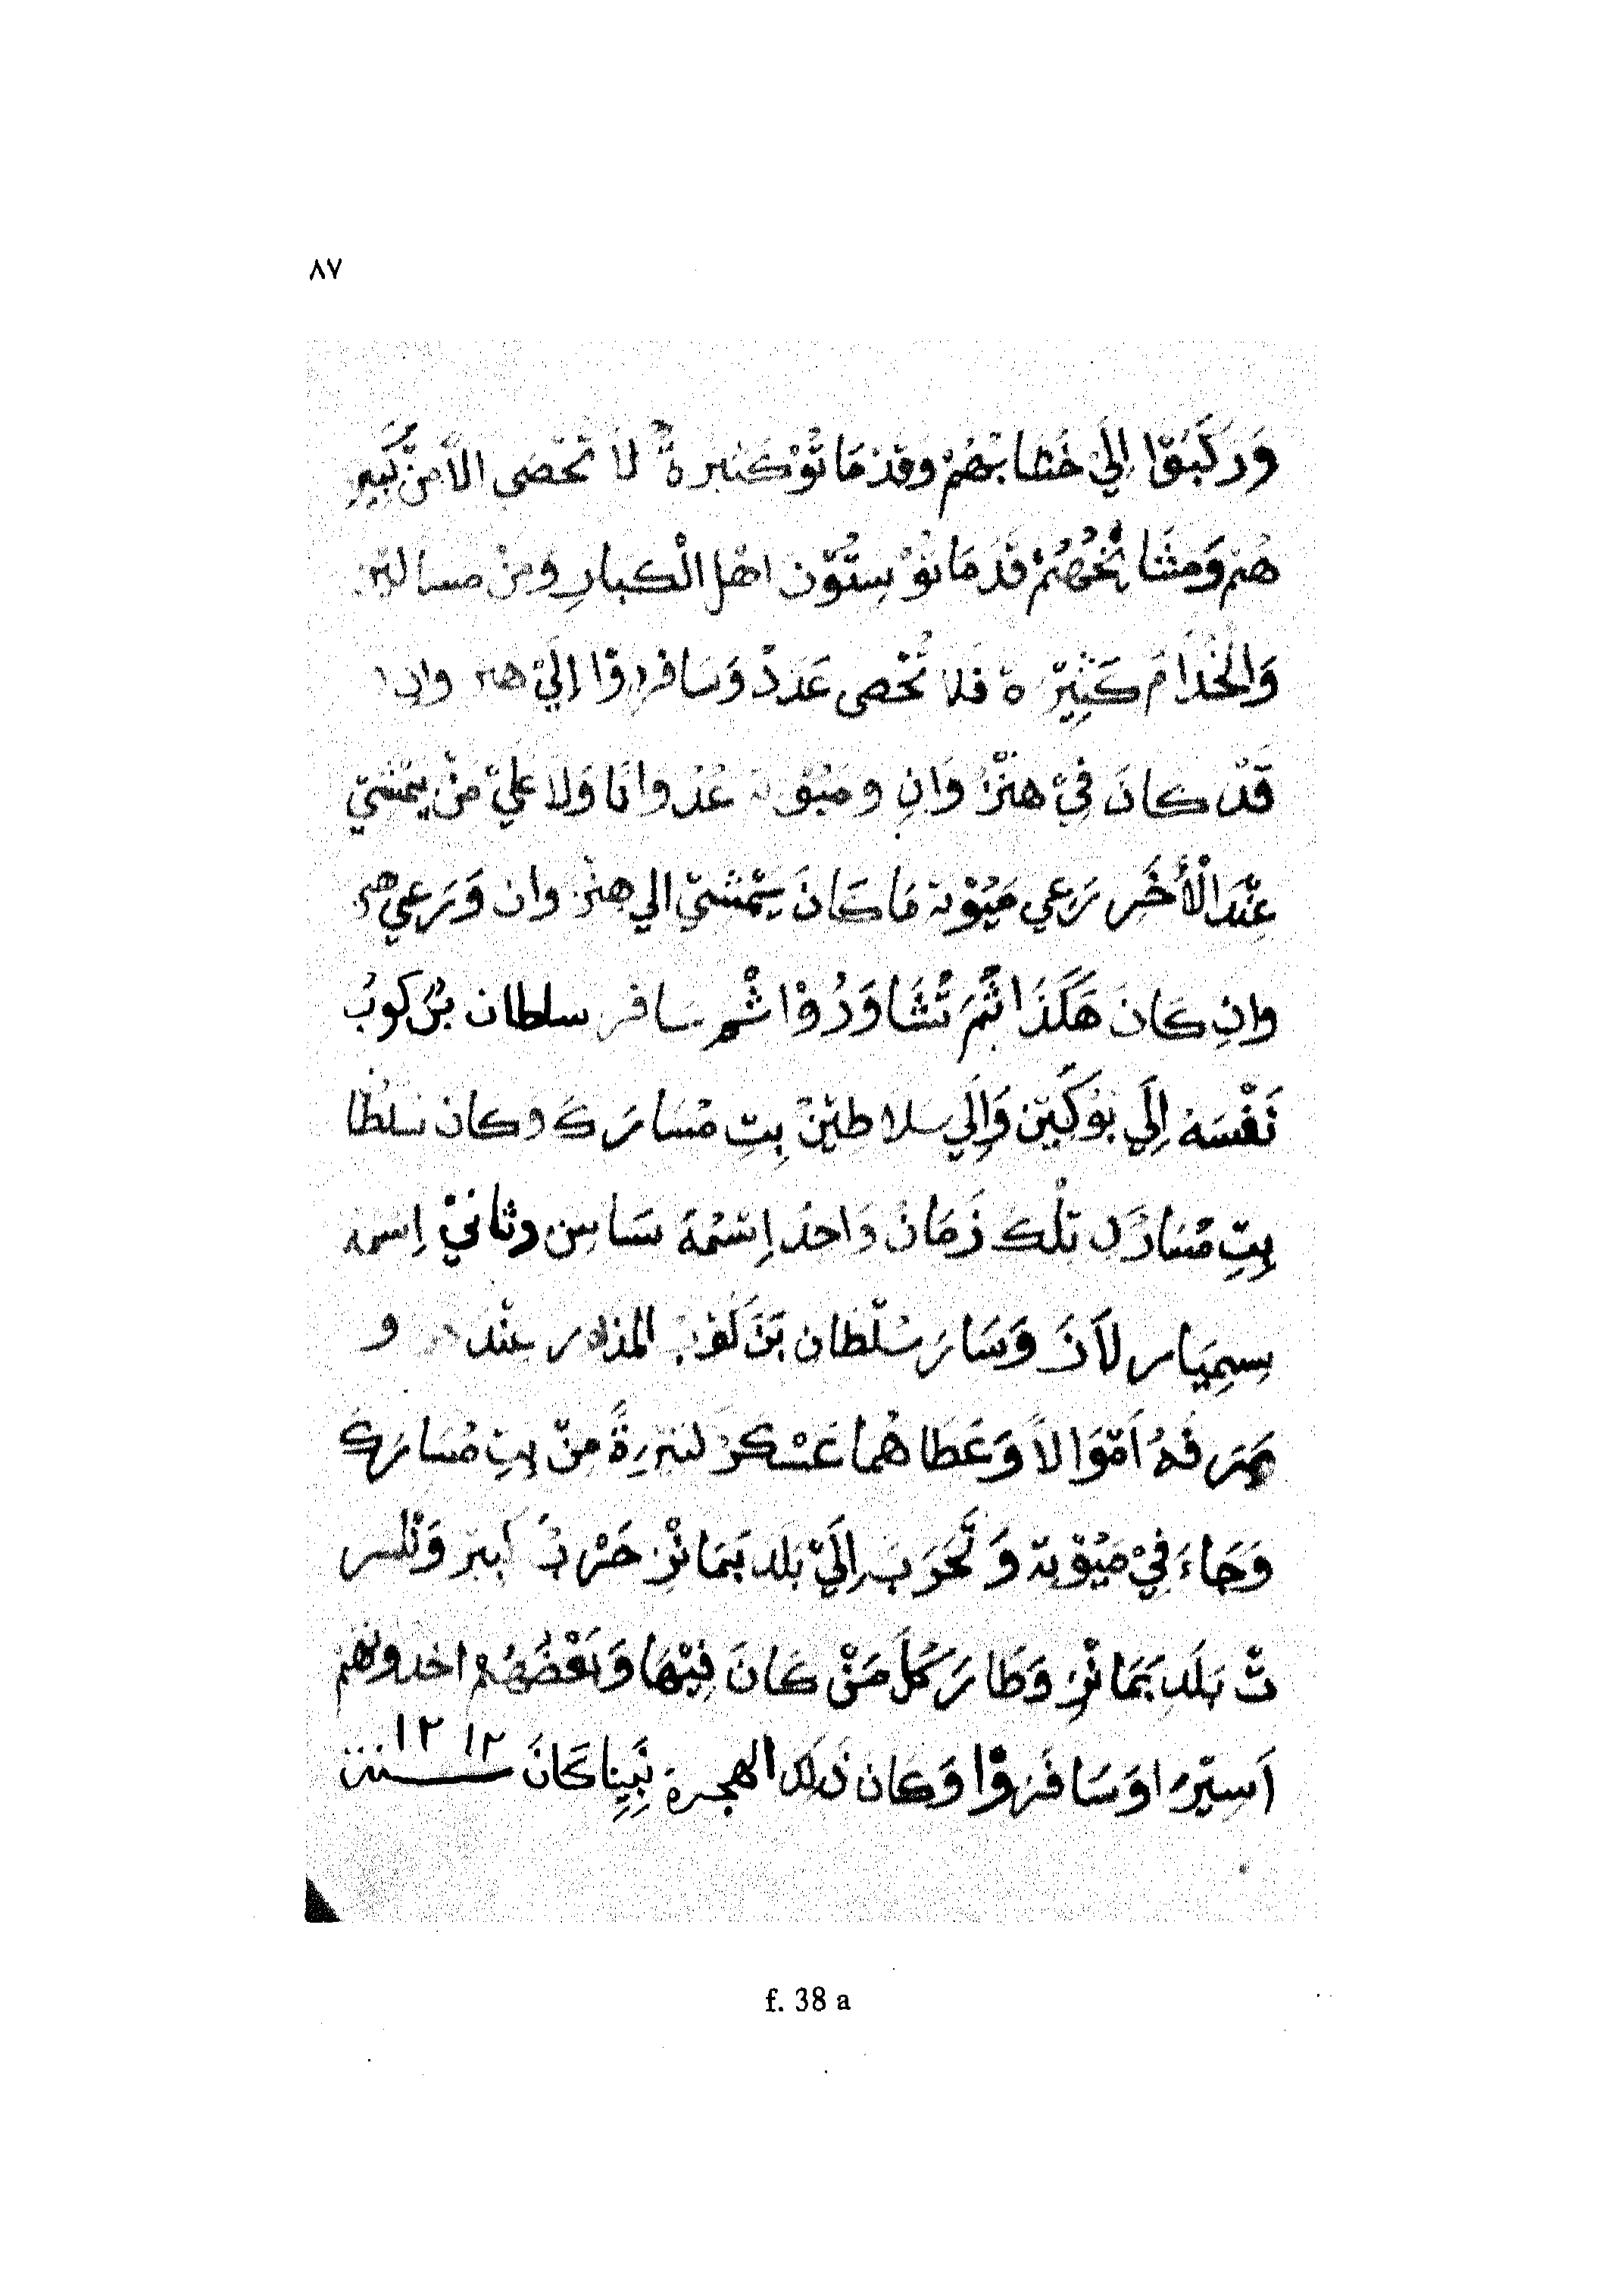 ٨٧
وَرَكَبُوْا اِلَيْ خَشَابِهُمْ وقدْ مَاتُوْ كثيرة لَا تحْصَى الاَّ منْ كَبِيْر
هُمْ وَمَشَائِخُهُمْ قَدْ مَاتُوْ سِتُّوْن اهْل الْكبارِ وَمنْ مسالين
وَالْخُدَّامَ كَثِيْرَة فلا تُحْصى عَدَدْ وَسَافرُوْا اِلَيْ هنز وان
قَدْ كَانَ فِيْ هنْزُ وَانِ و مَيُوْتة عُدْوانًا وَلَا عليْ مَنْ يمْشيْ
عِنْدَ الْأُخَر رَعِي مَيُوْتة مَا كَانَ يَمْشيْ الي هنْز وان وَرَعِي هنز
وانِ كَانَ هَكَذَا ثُمَ تُشَاوَرُوْا ثُم سَافر سلطان بْن كوبُ
نَفْسَهُ اِلَي بُوْكِيْن وَاِلَي سلاطيْن بِتِ مُسَارَكَ وكان سلطا
بِتِ مُسَارَك تِلْكَ زَمَانْ وَاحدْ اِسْمُهَ سَاسِن وثانيْ اِسمهُ
سِمِيَار لَانَ وَسَارَ سُلْطان بَن كوب المذكور عِنْد و
صَرَفهُ اَمْوَالاً وَعَطَاهُما عَسْكرْ كثيرةً مِنْ بتِ مُسَارَكَ
وَجَاءَ فِيْ مَيُوْتة وَتَحَرَبَ اِلَيْ بَلَد بَمَانْز حَرْبً كبير وَنكسر
تْ بَلَدِ بَمَانْز وَطَارَ كُلَّ مَنْ كَانَ فِيْهَا وَبَعْضُهُمْ اخذوهُمْ
اَسِيْرَا وَسَافَرُوْا وَكَان ذَلِكَ الهجرة نَبِيِنا كَانَ سنة ١٢١٢
f. 38 a